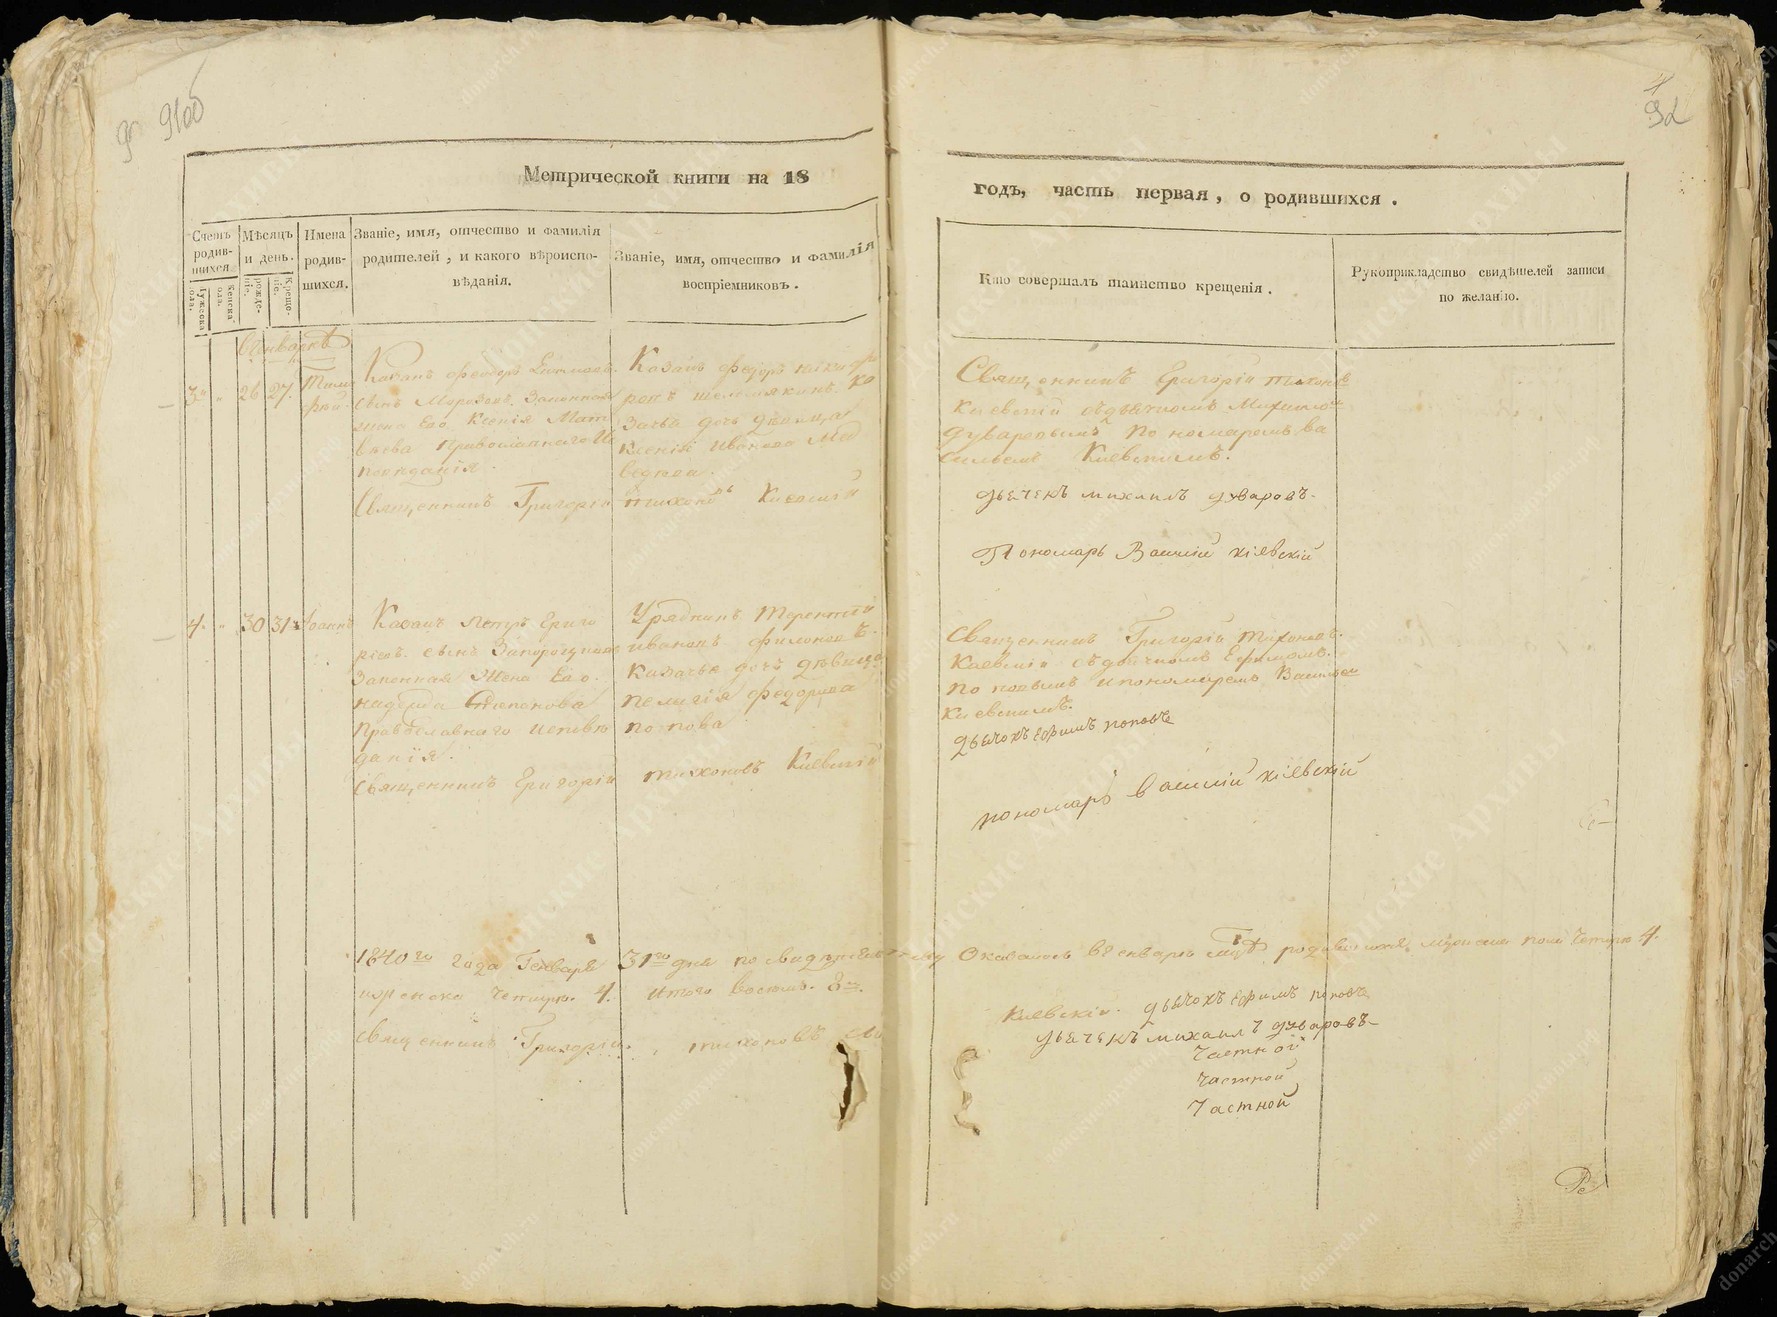 9100
92
Метрической книги на 18
годъ, часть первая, о родившихся.
Счетъ родив-шихся.
Мѣсяцъ и день.
Имена родив-шихся.
Званіе, имя, отчество и фамилія родителей, и какого вѣроиспо-вѣданія.
Званіе, имя, отчество и фамилія воспріемниковъ.
Кто совершалъ таинство крещенія.
Рукоприкладство свидѣтелей записи по желанію.
Мужеска пола.
Женска пола.
рожде-ніе.
Креще-ніе.
3
26
27
Казакъ Феодоръ
сынъ Морозовъ. Законная
жена Его Ксенія Мат
вѣева Православнаго И
повѣданія.
Священникъ Григорій
Казакъ Федоръ Ники
зачья дочь дѣвица
Ксенія Иванова
Тихоновъ Киевскій
Священникъ Григорій Тихоновъ
Киевскій съ дьячкомъ Михаилом
Дуваровымъ Пономаремъ Ва
сильемъ Киевскимъ.
дьячекъ михаилъ дуваровъ.
Пономарь Василій кіевскій
4.
30
31
Іоаннъ
Казакъ Петръ Григо
рьевъ. сынъ
Законная Жена Его.
надежда Степанова
Православнаго Исповѣ
данія.
Священникъ Григорій
Урядникъ Терентій
ивановъ филоновъ.
Казачья дочь дѣвица
пелагія федорова
попова
тихоновъ Киевскій
Священникъ Григорій Тихоновъ.
Киевскій съ дьячкомъ Ефимомъ.
Поповымъ и пономаремъ Васильем
Киевскимъ.
Дьячокъ Ефимъ поповъ
пономарь василій кіевскій
1840го года Генваря 31го дня по свидѣтельству Оказалось въ Генварѣ м-цѣ родившихся, мужеска пола Четыре 4.
женска Четыре. 4. Итого восемь. 8.
Священникъ Григорій тихоновъ
Киевскій. дьячокъ Ефимъ поповъ
дьячекъ михаилъ дуваровъ
Частной
Частной
Частной